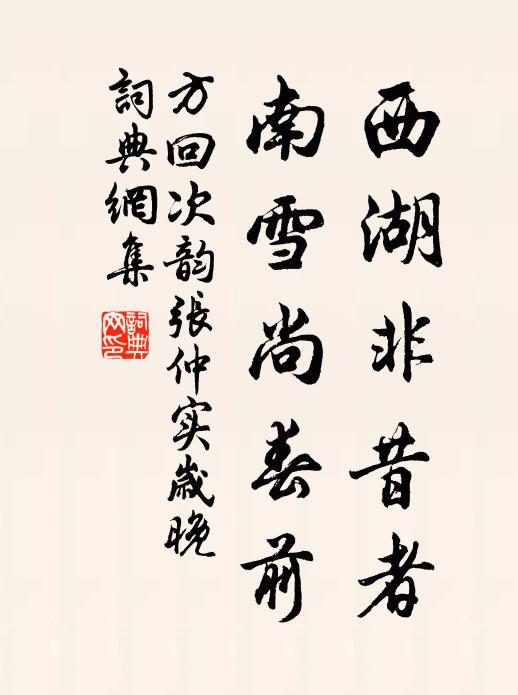 西湖非昔者
南雪尚春前
方回次韵張仲实歲晚
詞典網集
詞典
网印